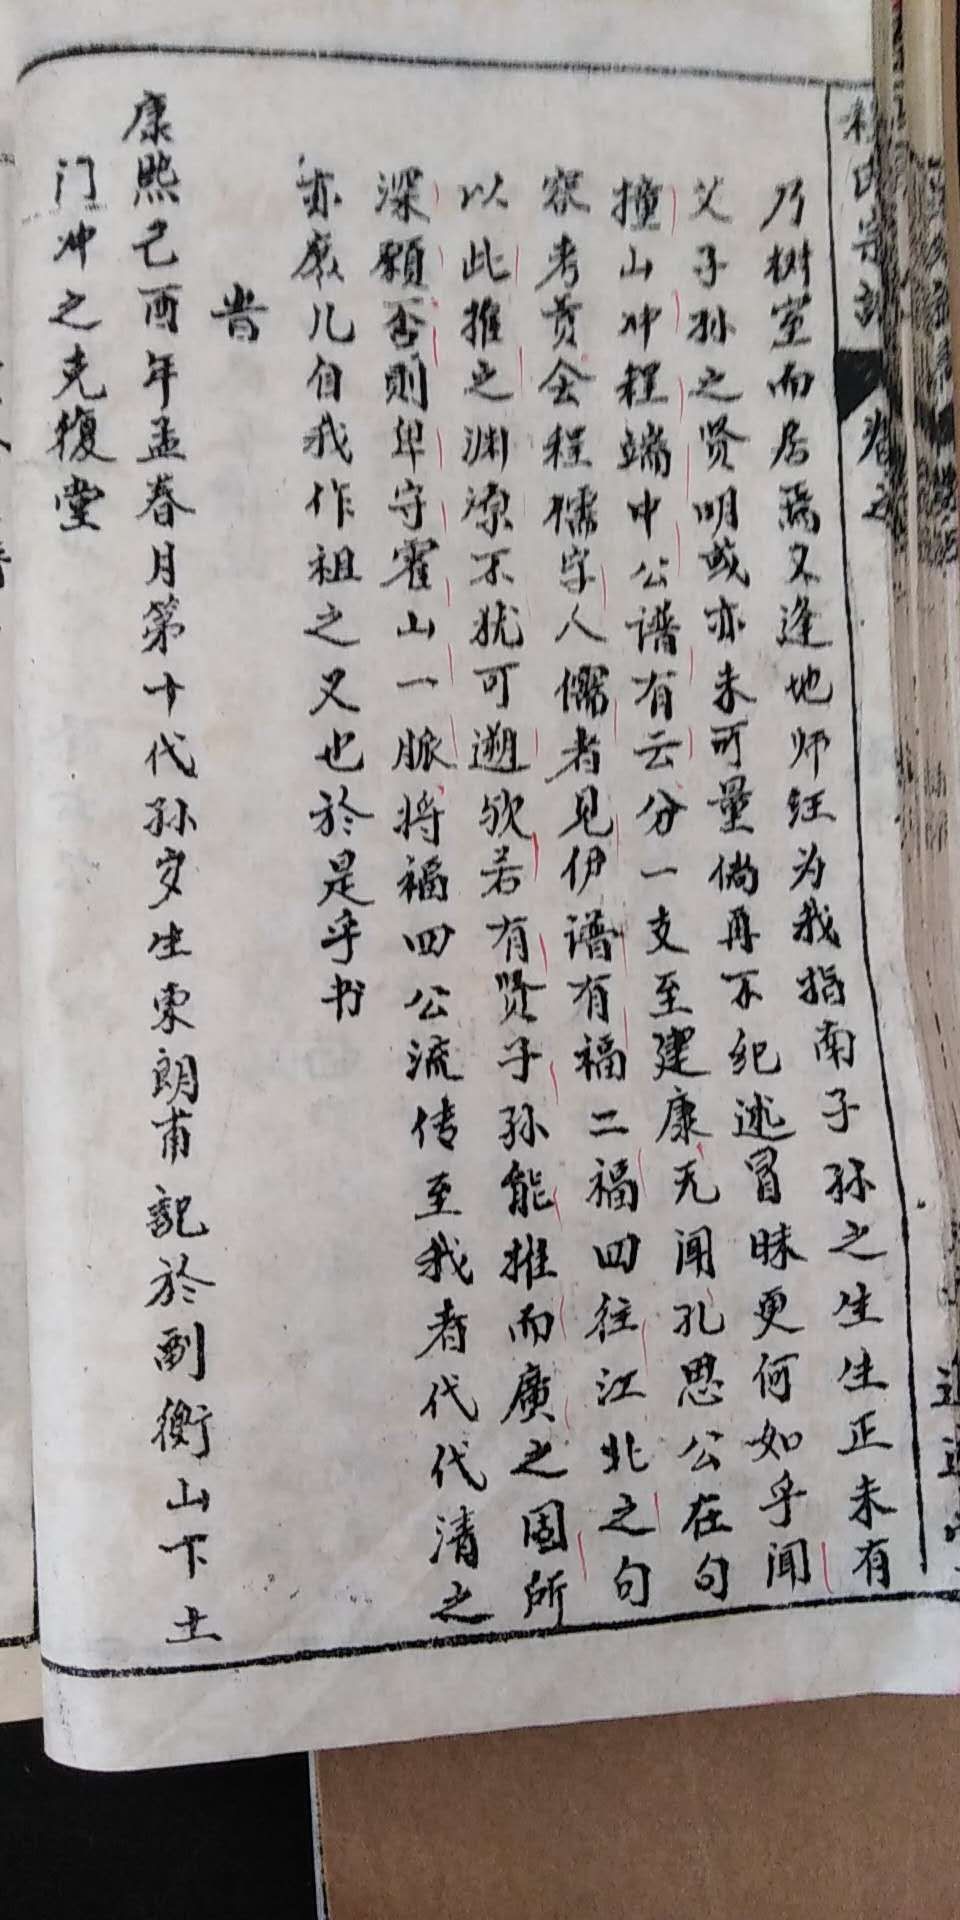 程氏宗谱 卷之
乃树室而居焉又逢地师经为我指南子孙之生生正未有
父子孙之贤明或亦未可量倘再不纪述冒昧更何如乎闻
撞山冲程端中公谱有云分一支至建康无闻孔思公在句
容考贡会程儒字人儒者见伊谱有福二福四往江北之句
以此推之渊源不犹可遡欤若有贤子孙能推而廣之固所
深願否则卑守霍山一脈将福四公流传至我者代代清之
亦庶几自我作祖之义也於是乎书
旹
康熙己酉年孟春月第十代孙岁生東朗甫 記於副衡山下土
门冲之克復堂